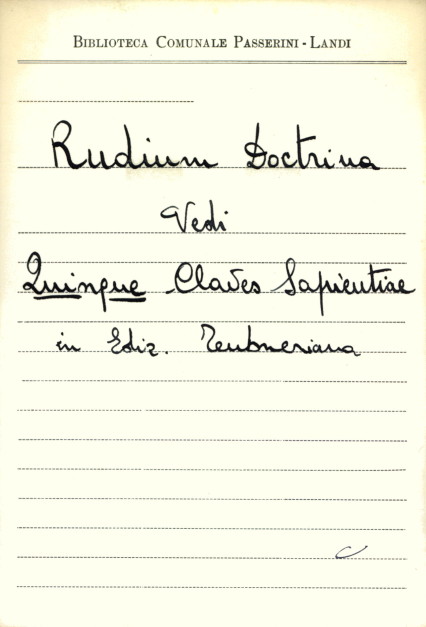 BIBLIOTECA COMUNALE PASSERINI - LANDI
Rudium Doctrina
Vedi
Quinque Claves Sapientiae
in Ediz. Teubneriana
C